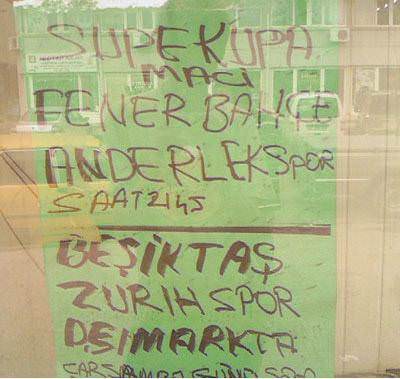 SUPEKUPA
MACI
FENERBAHÇE
ANDERLEKSPOR
SAAT 21 45
BEŞİKTAŞ
ZURIHSPOR
DŞIMARKTA
ÇARŞAMBA GÜNÜ